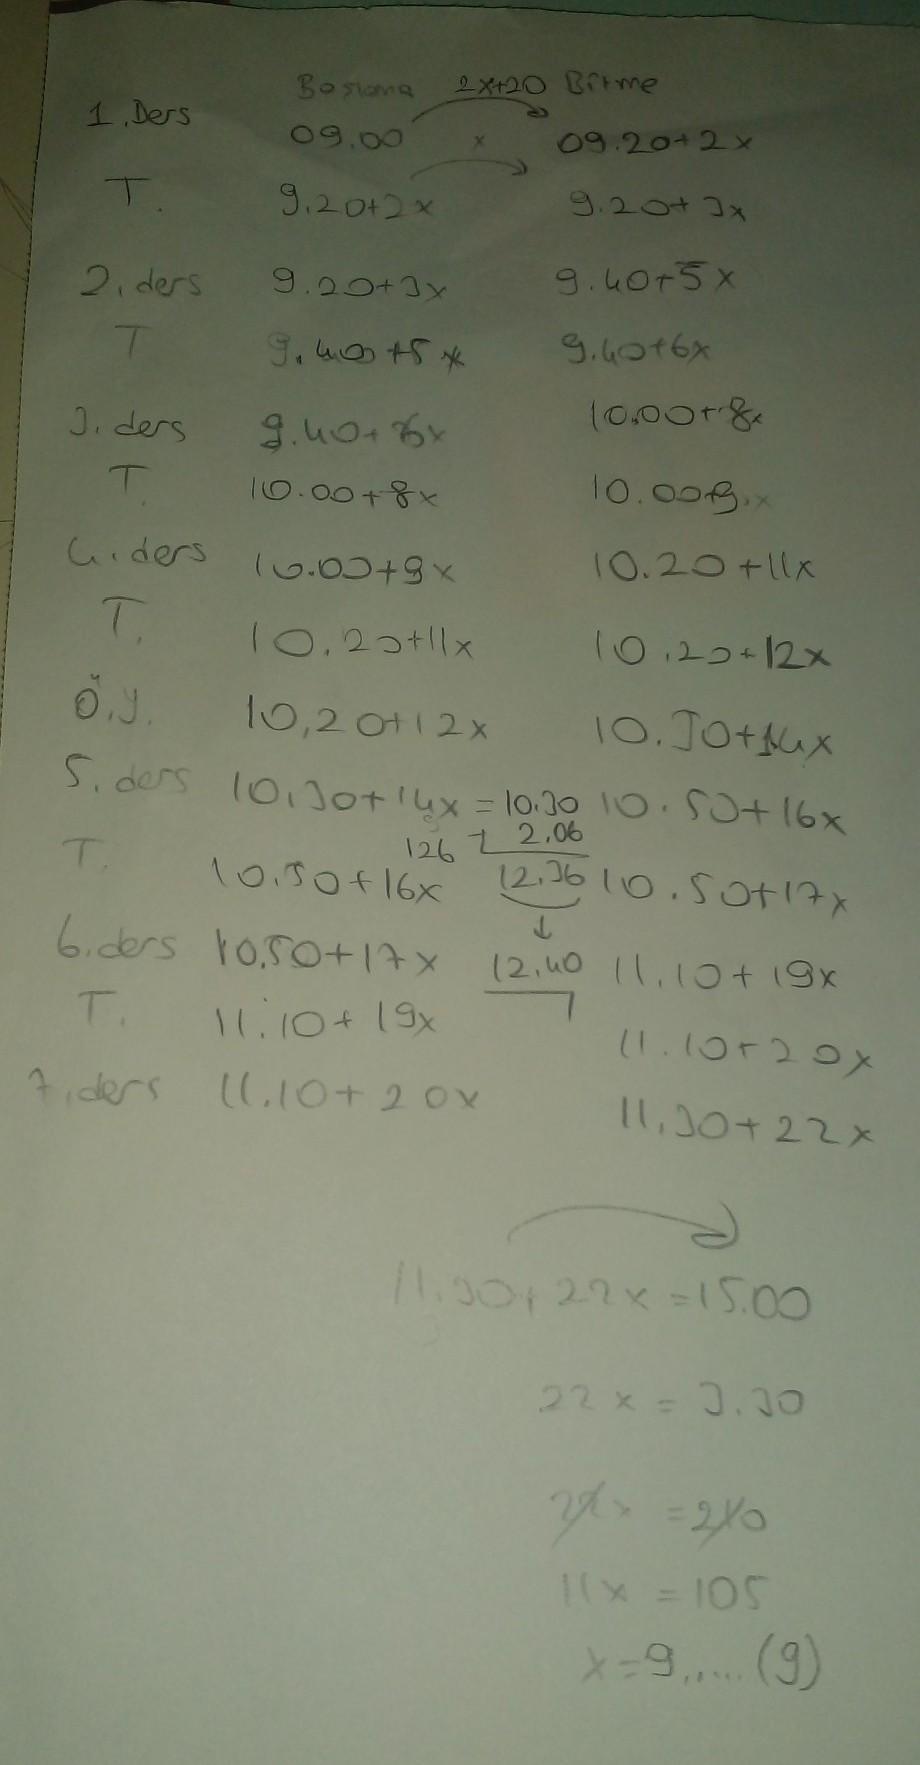 Başlama 2x+20 Bitme
1. Ders 09.00 x 09.20+2x
T. 9.20+2x 9.20+3x
2. ders 9.20+3x 9.40+5x
T 9.40+5x 9.40+6x
3. ders 9.40+6x 10.00+8x
T. 10.00+8x 10.00+9x
4. ders 10.00+9x 10.20+11x
T. 10.20+11x 10.20+12x
Ö.Y. 10,20+12x 10.30+14x
5. ders 10.30+14x = 10.30 10.50+16x
126 + 2.06
T. 10.50+16x 12.36 10.50+17x
6. ders 10.50+17x 12.40 11.10+19x
T. 11.10+19x 11.10+20x
7. ders 11.10+20x 11.30+22x
11.30+22x=15.00
22x = 3.30
22x = 210
11x = 105
x=9,.... (9)